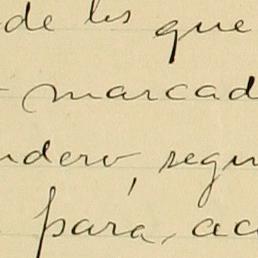 de los que
marcad
ndero, segu
para, ac